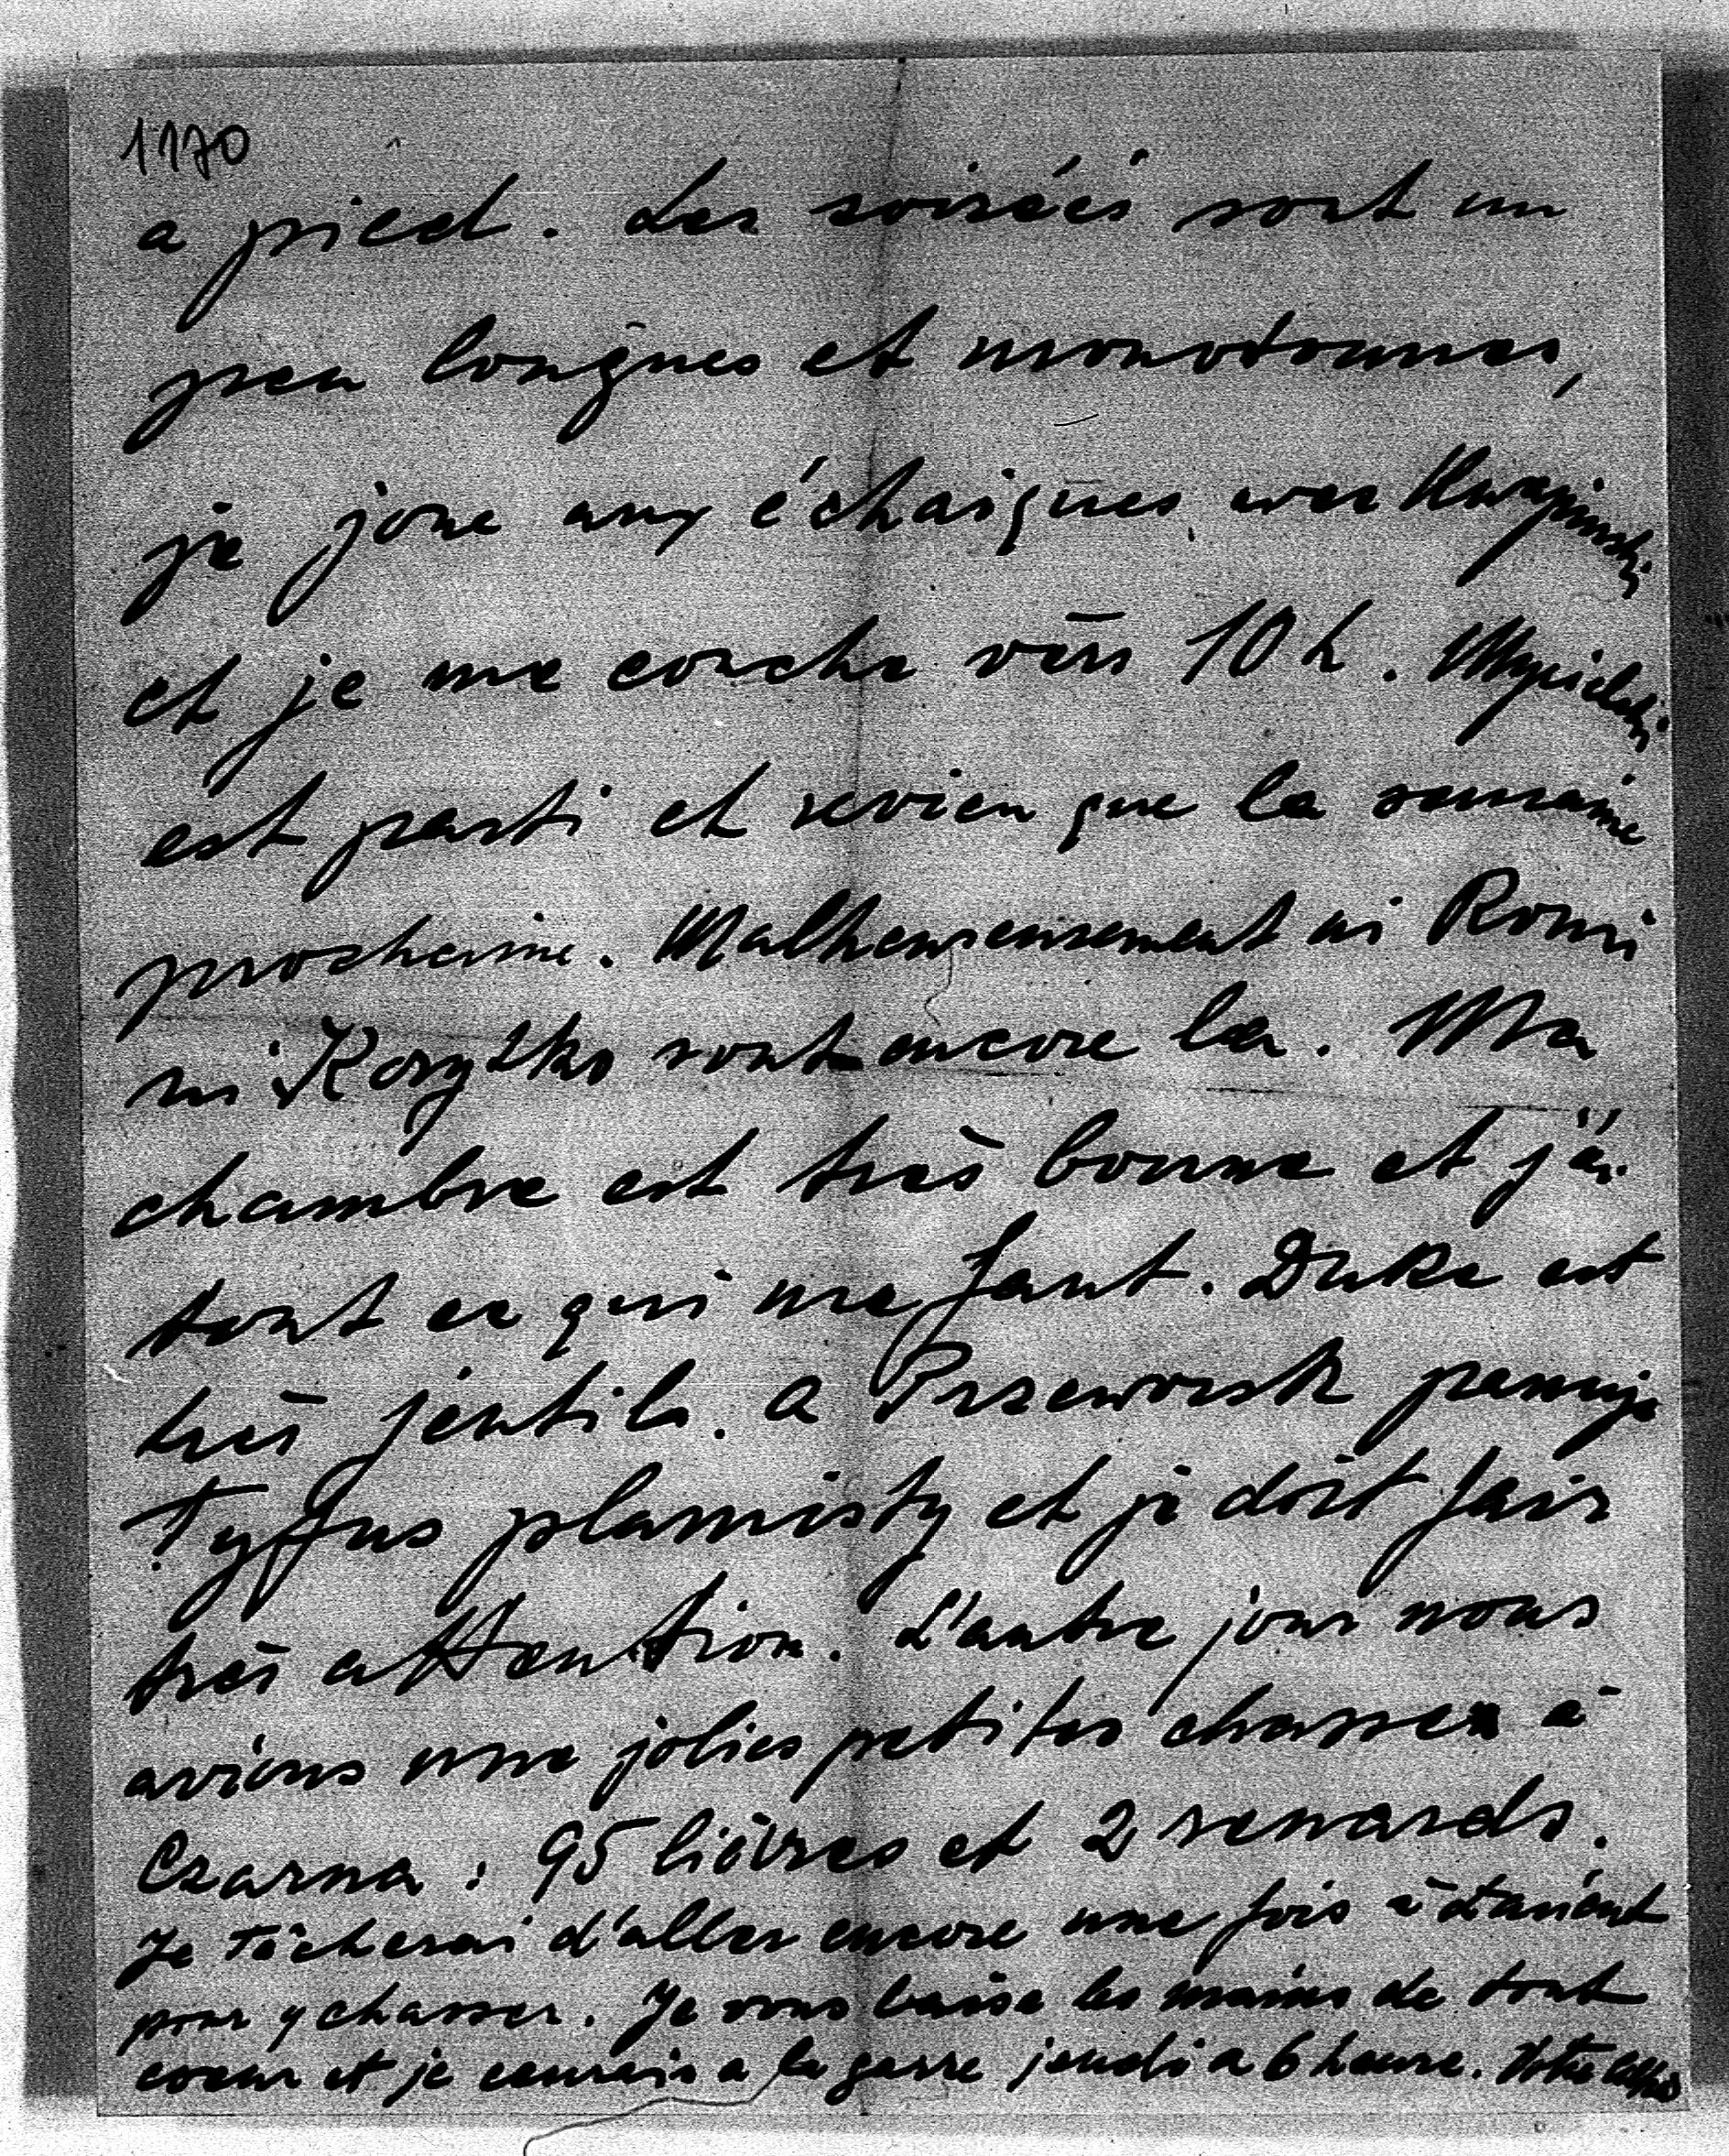 1170
a pied. Les soirées sont un
peu longues et monotonnes,
je joue aux échaigues avec Kwapinski
et je me couche vers 10 h. Mycielski
est parti et revien que la semaine
prochenne. Malheureusement ni Romi
ni Korytko sont encore la. Ma
chambre est très bonne et j'ai
tout ce qui me faut. Duke est
très jentils. A Przeworsk panuje
Tyffus plamisty et je doit fair
très attention. L'autre jour nous
avions une jolies petites chasse à
Czarna : 95 lièvres et 2 renards.
Je tâcherai d'aller encore une fois à
pour y chasser. Je vous baise les mains de tout
coeur et je courrais a la garre jeudi a 6 heure. Votre